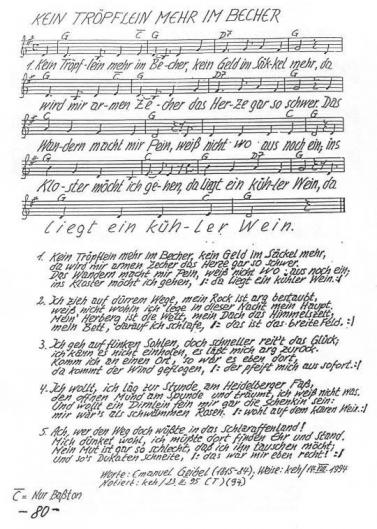 KEIN TRÖPFLEIN MEHR IM BECHER
G C̅ G D7 G
1. Kein Tröpf-lein mehr im Be-cher, kein Geld im Säk-kel mehr, da
G C̅ G D7 G
wird mir ar-men Ze-cher das Her-ze gar so schwer. Das
C G C G
Wan-dern macht mir Pein, weiß nicht wo aus noch ein, ins
G C G D7 G
Klo-ster möcht ich ge-hen, da liegt ein küh-ler Wein, da
G C G D7 G
liegt ein küh-ler Wein.
1. Kein Tröpflein mehr im Becher, kein Geld im Säckel mehr,
da wird mir armen Zecher das Herze gar so schwer.
Das Wandern macht mir Pein, weiß nicht wo aus noch ein;
ins Kloster möcht ich gehen, /: da liegt ein kühler Wein. :/
2. Ich zieh auf dürrem Wege, mein Rock ist arg bestaubt,
weiß nicht wohin ich lege in dieser Nacht mein Haupt.
Mein' Herberg ist die Welt, mein Dach das Himmelszelt,
mein Bett, darauf ich schlafe, /: das ist das breite Feld. :/
3. Ich geh auf flinken Sohlen, doch schneller reit't das Glück;
ich kann es nicht einholen, es läßt mich arg zurück.
Komm ich an einen Ort, so war es eben dort,
da kommt der Wind geflogen, /: der pfeift mich aus sofort. :/
4. Ich wollt, ich läg zur Stunde am Heidelberger Faß,
den offnen Mund am Spunde und träumt, ich weiß nicht was.
Und wollt ein Dirnlein fein mir gar die Schenkin sein:
mir wär's als schwämmen Rosen /: wohl auf dem klaren Wein. :/
5. Ach, wer den Weg doch wüßte in das Schlaraffenland!
Mich dünket wohl, ich müßte dort finden Ehr und Stand.
Mein Mut ist gar so schlecht, daß ich ihn tauschen möcht;
und so's Dukaten schneite, /: das wär mir eben recht! :/
Worte: Emanuel Geibel (1815-84); Weise: keh/ 1994
Notiert: keh/ 95 (T) (94)
C̅ = Nur Baßton
- 80 -